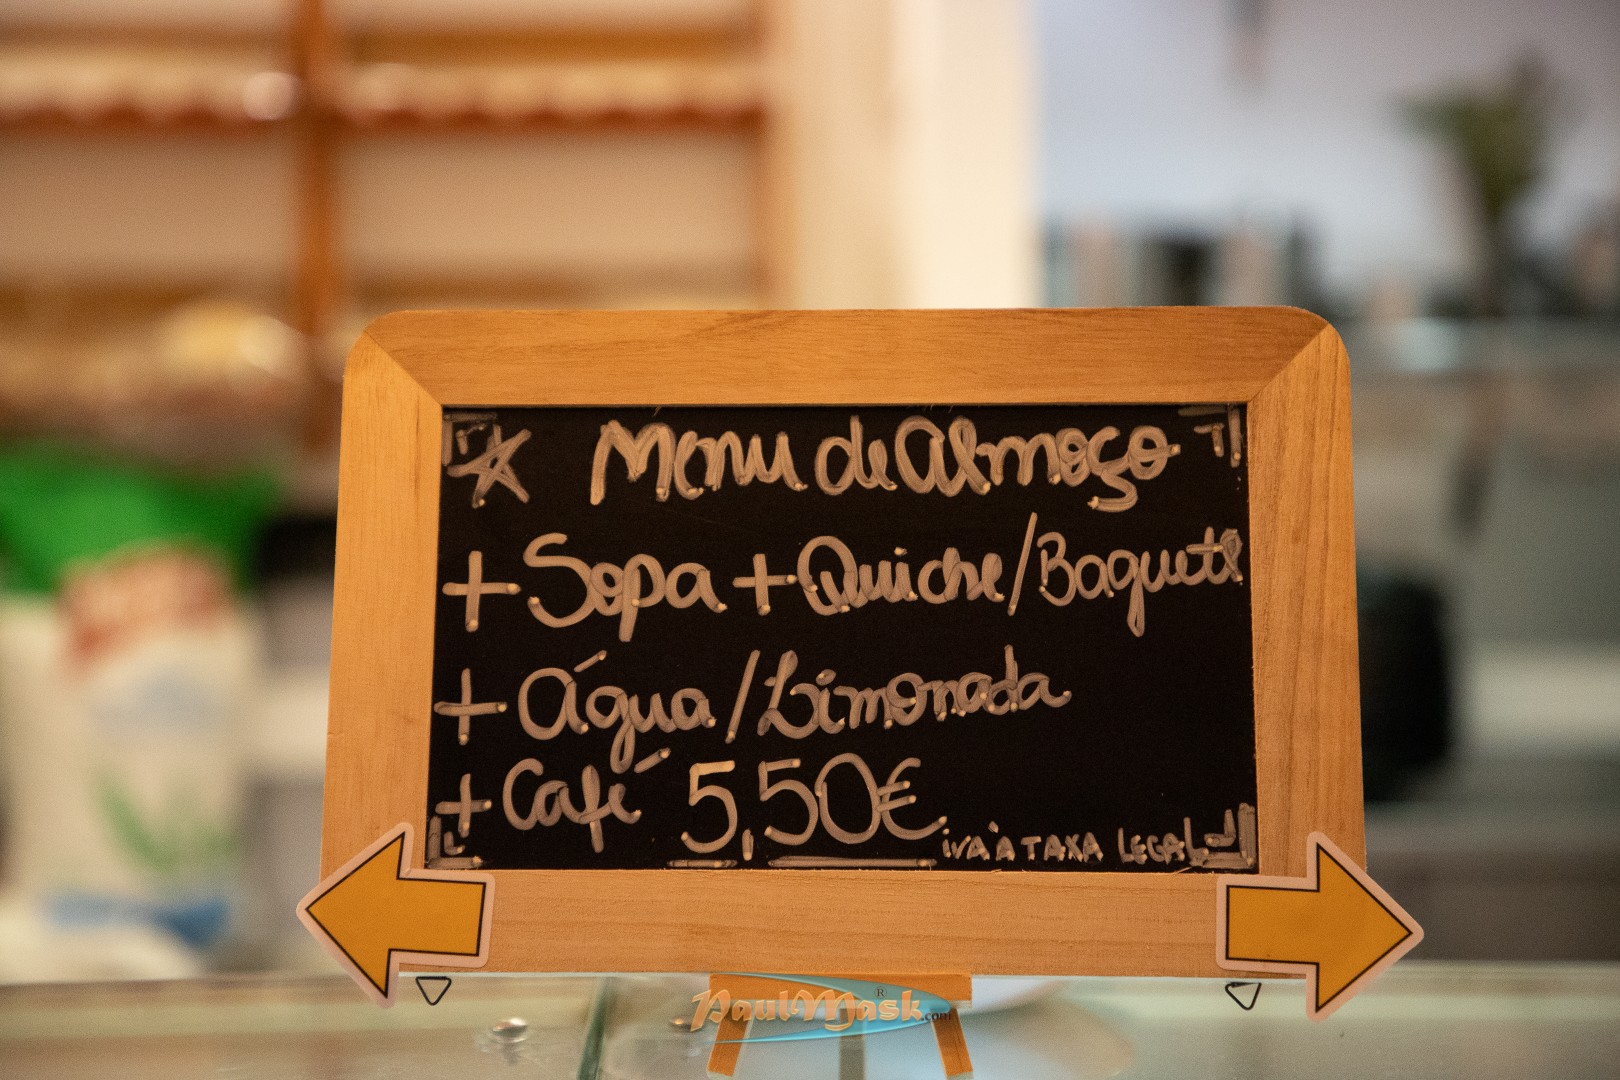 Menu de Almoço
+ Sopa + Quiche/Baguete
+ Água/Limonada
+ Café 5,50€
iva à TAXA LEGAL
PaulMask®.com